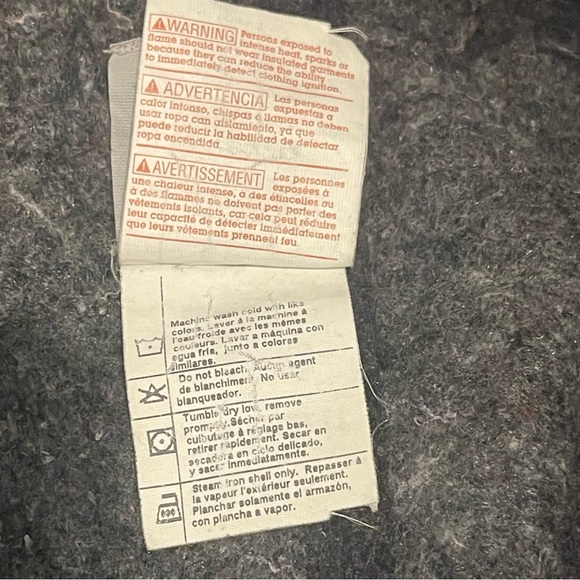 WARNING Persons exposed to
intense heat, sparks or
flame should not wear insulated garments
because they can reduce the ability
to immediately detect clothing ignition.
ADVERTENCIA Las personas
expuestas a
calor intenso, chispas o llamas no deben
usar ropa con aislamiento, ya que
puede reducir la habilidad de detectar
ropa encendida.
AVERTISSEMENT Les personnes
exposées à
une chaleur intense, a des étincelles ou
à des flammes ne doivent pas porter des
vêtements isolants, car cela peut réduire
leur capacité de détecter immédiatement
que leurs vêtements prennent feu.
Machine wash cold with like
colors. Laver à la machine à
l'eau froide avec les mêmes
couleurs. Lavar a máquina con
agua fría, junto a colores
similares.
Do not bleach. Aucun agent
de blanchiment. No usar
blanqueador.
Tumble dry low, remove
promptly. Sécher par
culbutage à réglage bas,
retirer rapidement. Secar en
secadora en ciclo delicado,
y sacar inmediatamente.
Steam iron shell only. Repasser à
la vapeur l'extérieur seulement.
Planchar solamente el armazón,
con plancha a vapor.